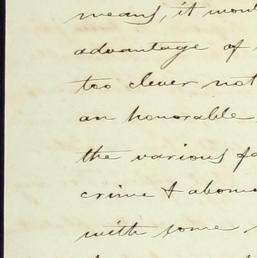 means, it
advantage of
too clever not
an honorable
the various
crime &
with some,